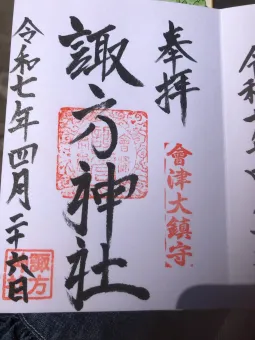 奉拝
會津大鎮守
諏方神社
令和七年四月二十六日
諏方
令和七年四